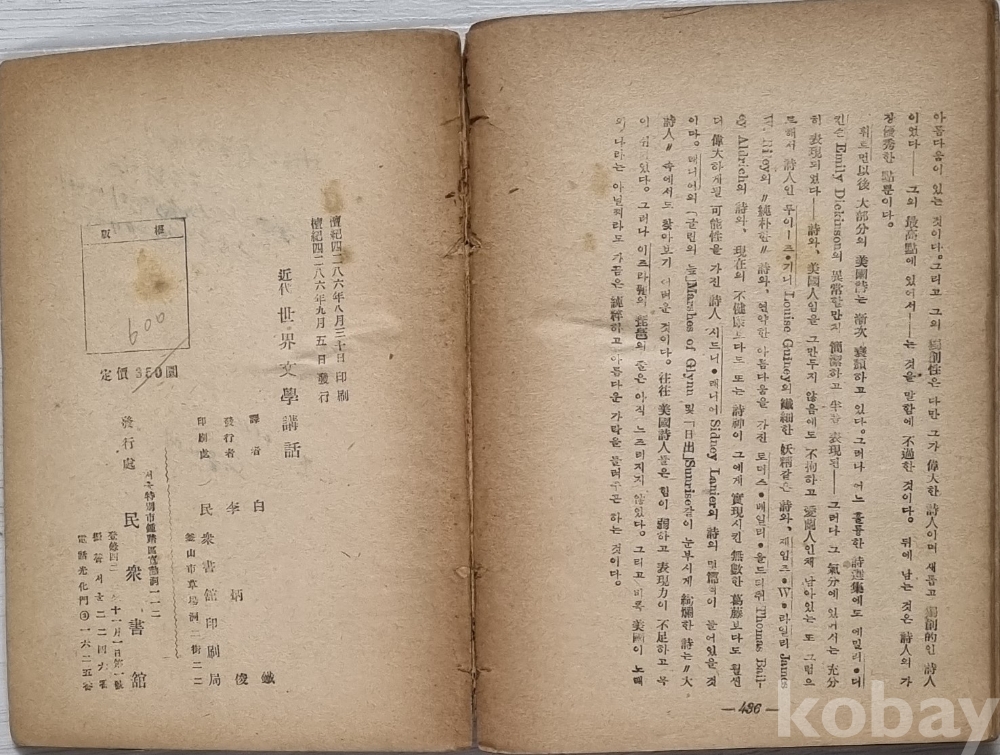 아름다움이 있는 것이다. 그리고 그의 獨創性은 다만 그가 偉大한 詩人이며 새롭고 獨創的인 詩人
이었다── 그의 最高點에 있어서──는 것을 말함에 不過한 것이다. 뒤에 남는 것은 詩人의 가
장 優秀한 點뿐이다.
휘트먼 以後 大部分의 美國詩는 漸次 衰頹하고 있다. 그러나 어느 훌륭한 詩選集에도 에밀리•디
킨슨 Emily Dickinson의 異常할만치 簡潔하고 半쯤 表現된── 그러나 그 氣分에 있어서는 充分
히 表現되었다── 詩와, 美國人임을 그만두지 않음에도 不拘하고 愛蘭人인채 남아있는 또 그럼으
로해서 詩人인 루이──즈•기니 Louise Guiney의 纖細한 妖精같은 詩와, 제임즈•W•라일리 James
Riley의 〃純朴한〃 詩와, 연약한 아름다움을 가진 토머스•베일리•올드리취 Thomas Bail-
ey Aldrich의 詩와, 現在의 不健康보다도 또는 詩神이 그에게 實現시킨 無數한 葛藤보다도 훨씬
더 偉大하게될 可能性을 가진 詩人 시드니•래니어 Sidney Lanier의 詩의 몇篇이 들어있을 것
이다. 래니어의 「글린의 늪」Marshes of Glynn 및 「日出」Sunrise같이 눈부시게 絢爛한 詩는 〃大
詩人〃 속에서도 찾아보기 어려운 것이다. 往往 美國詩人들은 힘이 弱하고 表現력이 不足하고 목
이 쉬 있다. 그러나 이즈라펠의 琵琶의 줄은 아직 느르러지지 않았다. 그리고 비록 美國이 노래
의 나라는 아닐찌라도 가끔은 純粹하고 아름다운 가락을 들려주곤 하는 것이다.
—436—
檀紀四二八六年八月三十日 印刷
檀紀四二八六年九月 五日 發行
近代 世界文學講話
譯者 白 鐵
發行者 李炳俊
印刷處 民衆書館印刷局
釜山市草場洞二街二二
서울特別市鍾路區寬勳洞一一二
發行處 民衆書館
電話光化門③一六二五番
版權
600
定價 350圜
kobay